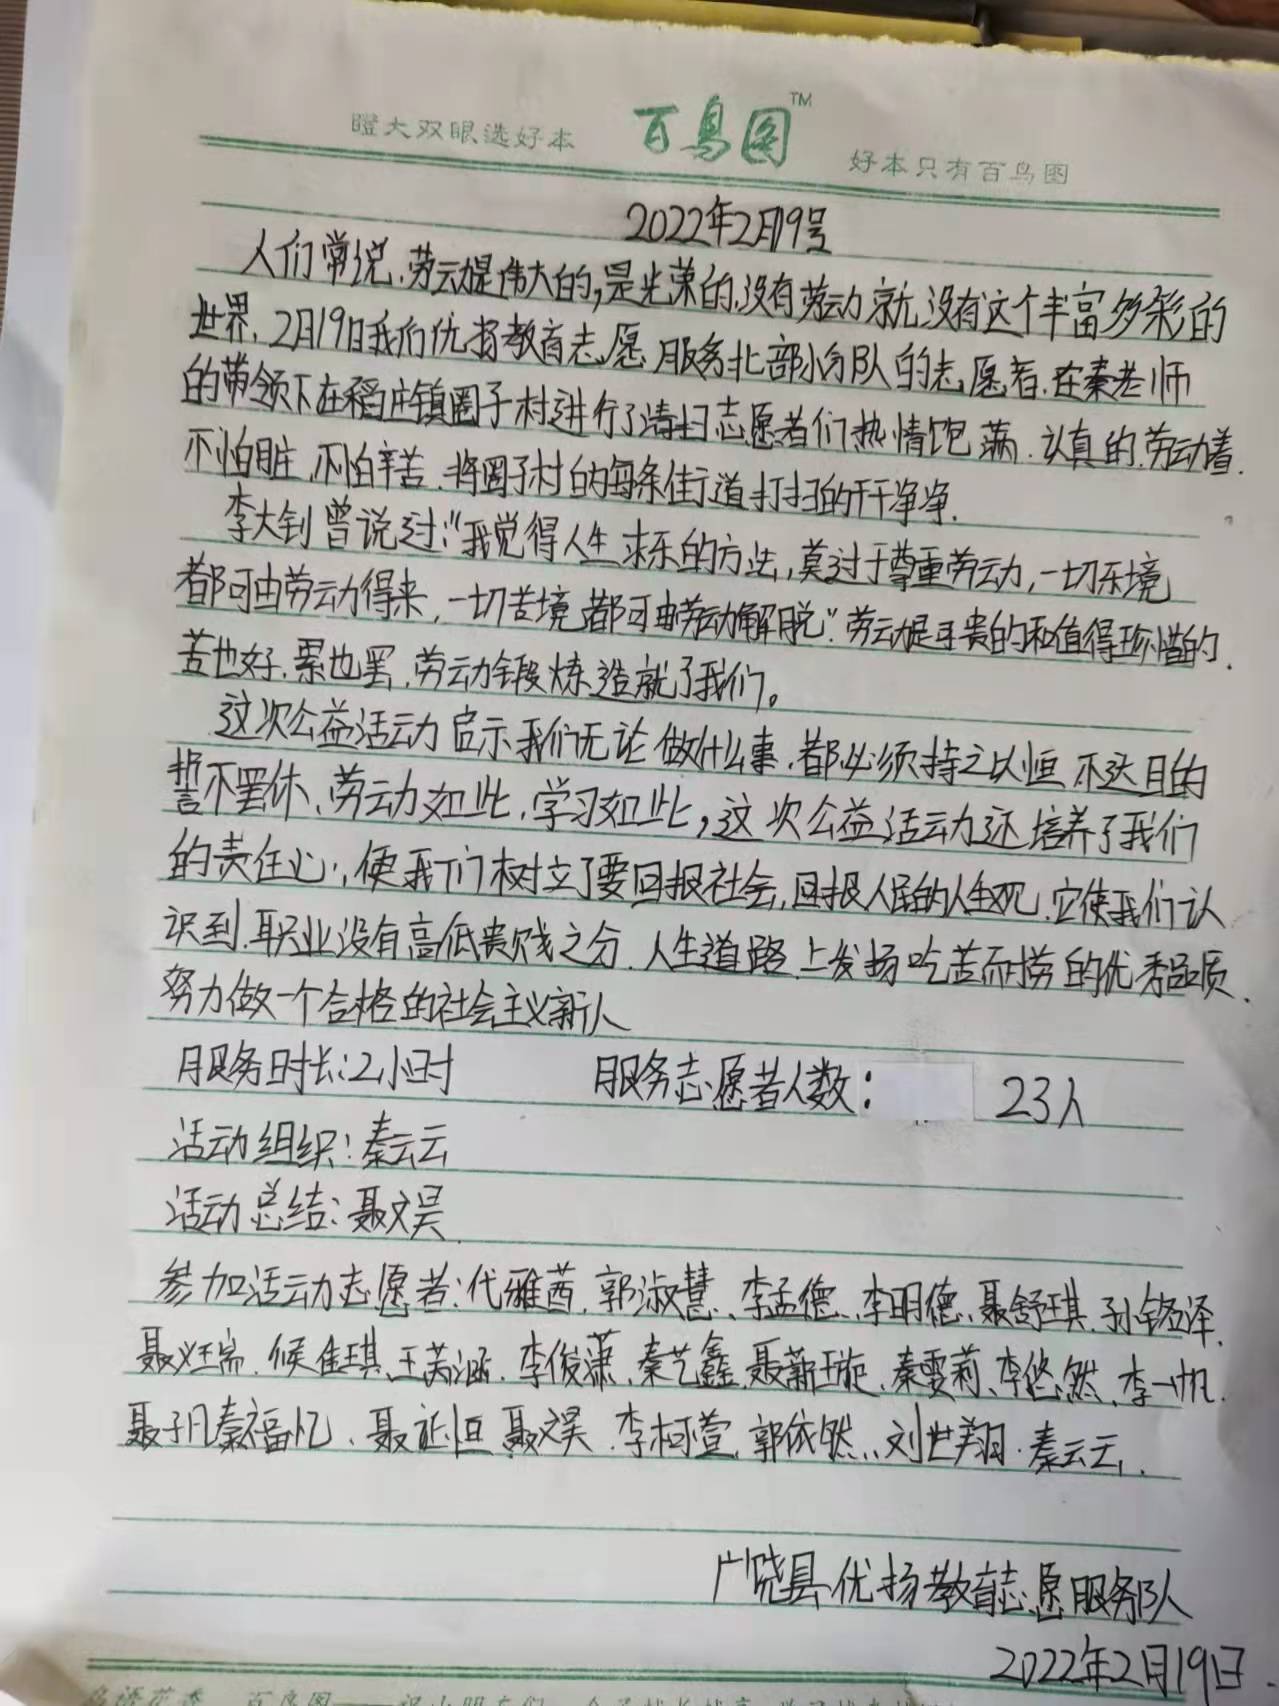 瞪大双眼选好本 百鸟图™ 好本只有百鸟图
2022年2月19号
人们常说,劳动是伟大的,是光荣的,没有劳动就没有这个丰富多彩的
世界,2月19日我们优扬教育志愿服务北部小分队的志愿者,在秦老师
的带领下在稻庄镇圈子村进行了清扫志愿者们热情饱满,认真的劳动着,
不怕脏,不怕辛苦,将圈子村的每条街道打扫的干干净净.
李大钊曾说过:“我觉得人生求乐的方法,莫过于尊重劳动,一切乐境
都可由劳动得来,一切苦境都可由劳动解脱”.劳动是可贵的和值得珍惜的,
苦也好,累也罢,劳动锻炼造就了我们。
这次公益活动启示我们无论做什么事,都必须持之以恒不达目的
誓不罢休、劳动如此,学习如此,这次公益活动还培养了我们
的责任心,使我们树立了要回报社会,回报人民的人生观,它使我们认
识到,职业没有高低贵贱之分,人生道路上发扬吃苦而捞的优秀品质,
努力做一个合格的社会主义新人
服务时长:2小时 服务志愿者人数: 23人
活动组织:秦云云
活动总结:聂文昊
参加活动志愿者:代雅茜,郭淑慧、李孟德、李明德、聂舒琪,孙铭泽,
聂义瑞,候佳琪,王芙涵,李俊潇,秦艺鑫,聂薪璇,秦雯莉、李悠然、李一帆,
聂子凡秦福忆、聂延恒聂文昊,李柯萱,郭依然,刘世翔,秦云云,
广饶县优扬教育志愿服务队
2022年2月19日.